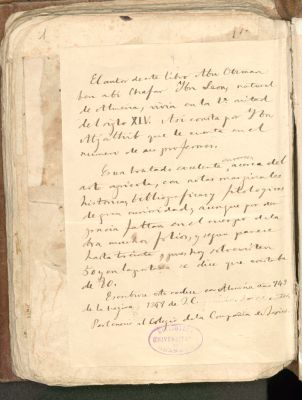 1
El autor de este libro Abu Otzman
ben abi Chafar Ibn Leon, natural
de Almeria, vivia en la 1ª mitad
del siglo XIV. Asi consta por Ibn
Aljathib que le cuenta en el
número de sus profesores.
Es un tratado excelente acerca del
arte agricola, con notas marginales
históricas, bibliográficas y filológicas
de gran curiosidad, aunque por des-
gracia faltan en el cuerpo de la
obra muchos folios, y segun parece
hasta treinta, pues hoy solo existen
50 y en la portada se dice que constaba
de 80.
Escribiose este codice en Almeria año 749
de la hegira, 1348 de J.C.
Perteneció al Colegio de la Compañia de Jesus
BIBLIOTECA
UNIVERSITARIA
GRANADA